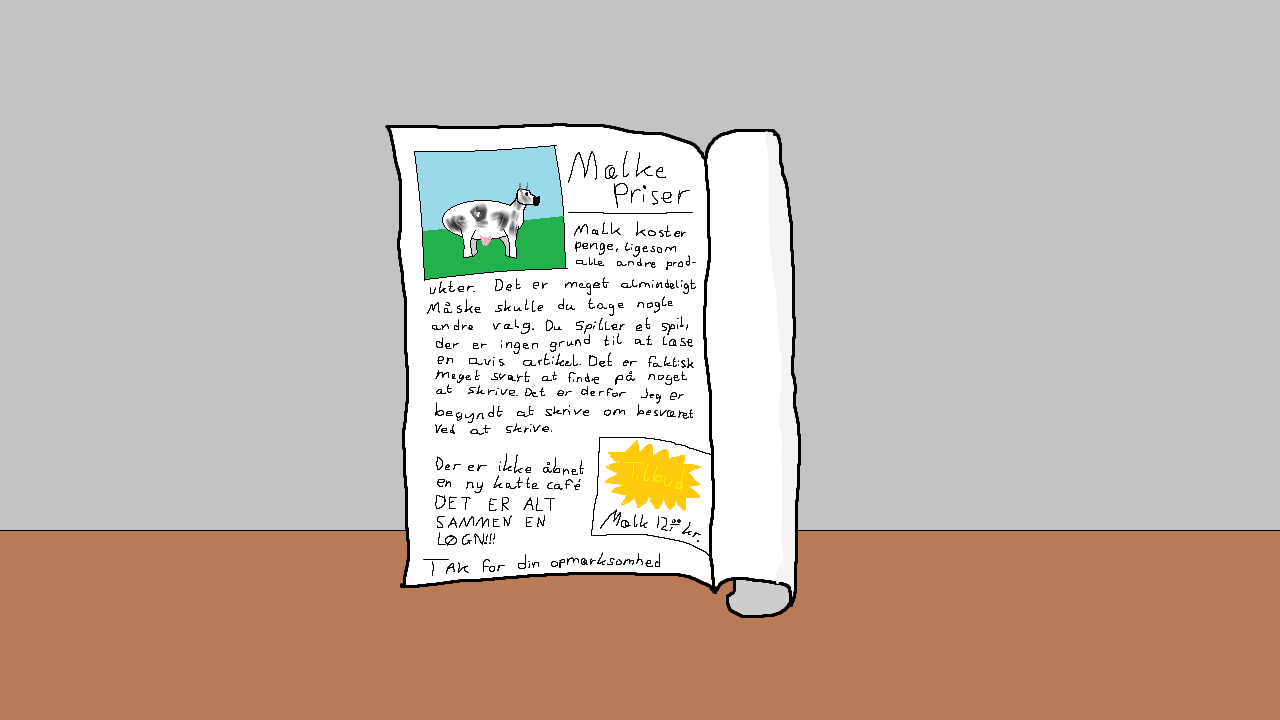 Mælke
Priser
Mælk koster
penge, ligesom
alle andre prod-
ukter. Det er meget almindeligt
Måske skulle du tage nogle
andre valg. Du spiller et spil,
der er ingen grund til at læse
en avis artikel. Det er faktisk
meget svært at finde på noget
at skrive. Det er derfor Jeg er
begyndt at skrive om besværet
ved at skrive.
Der er ikke åbnet
en ny katte café
DET ER ALT
SAMMEN EN
LØGN!!!
Tilbud
Mælk 12,00 kr.
TAK for din opmærksomhed